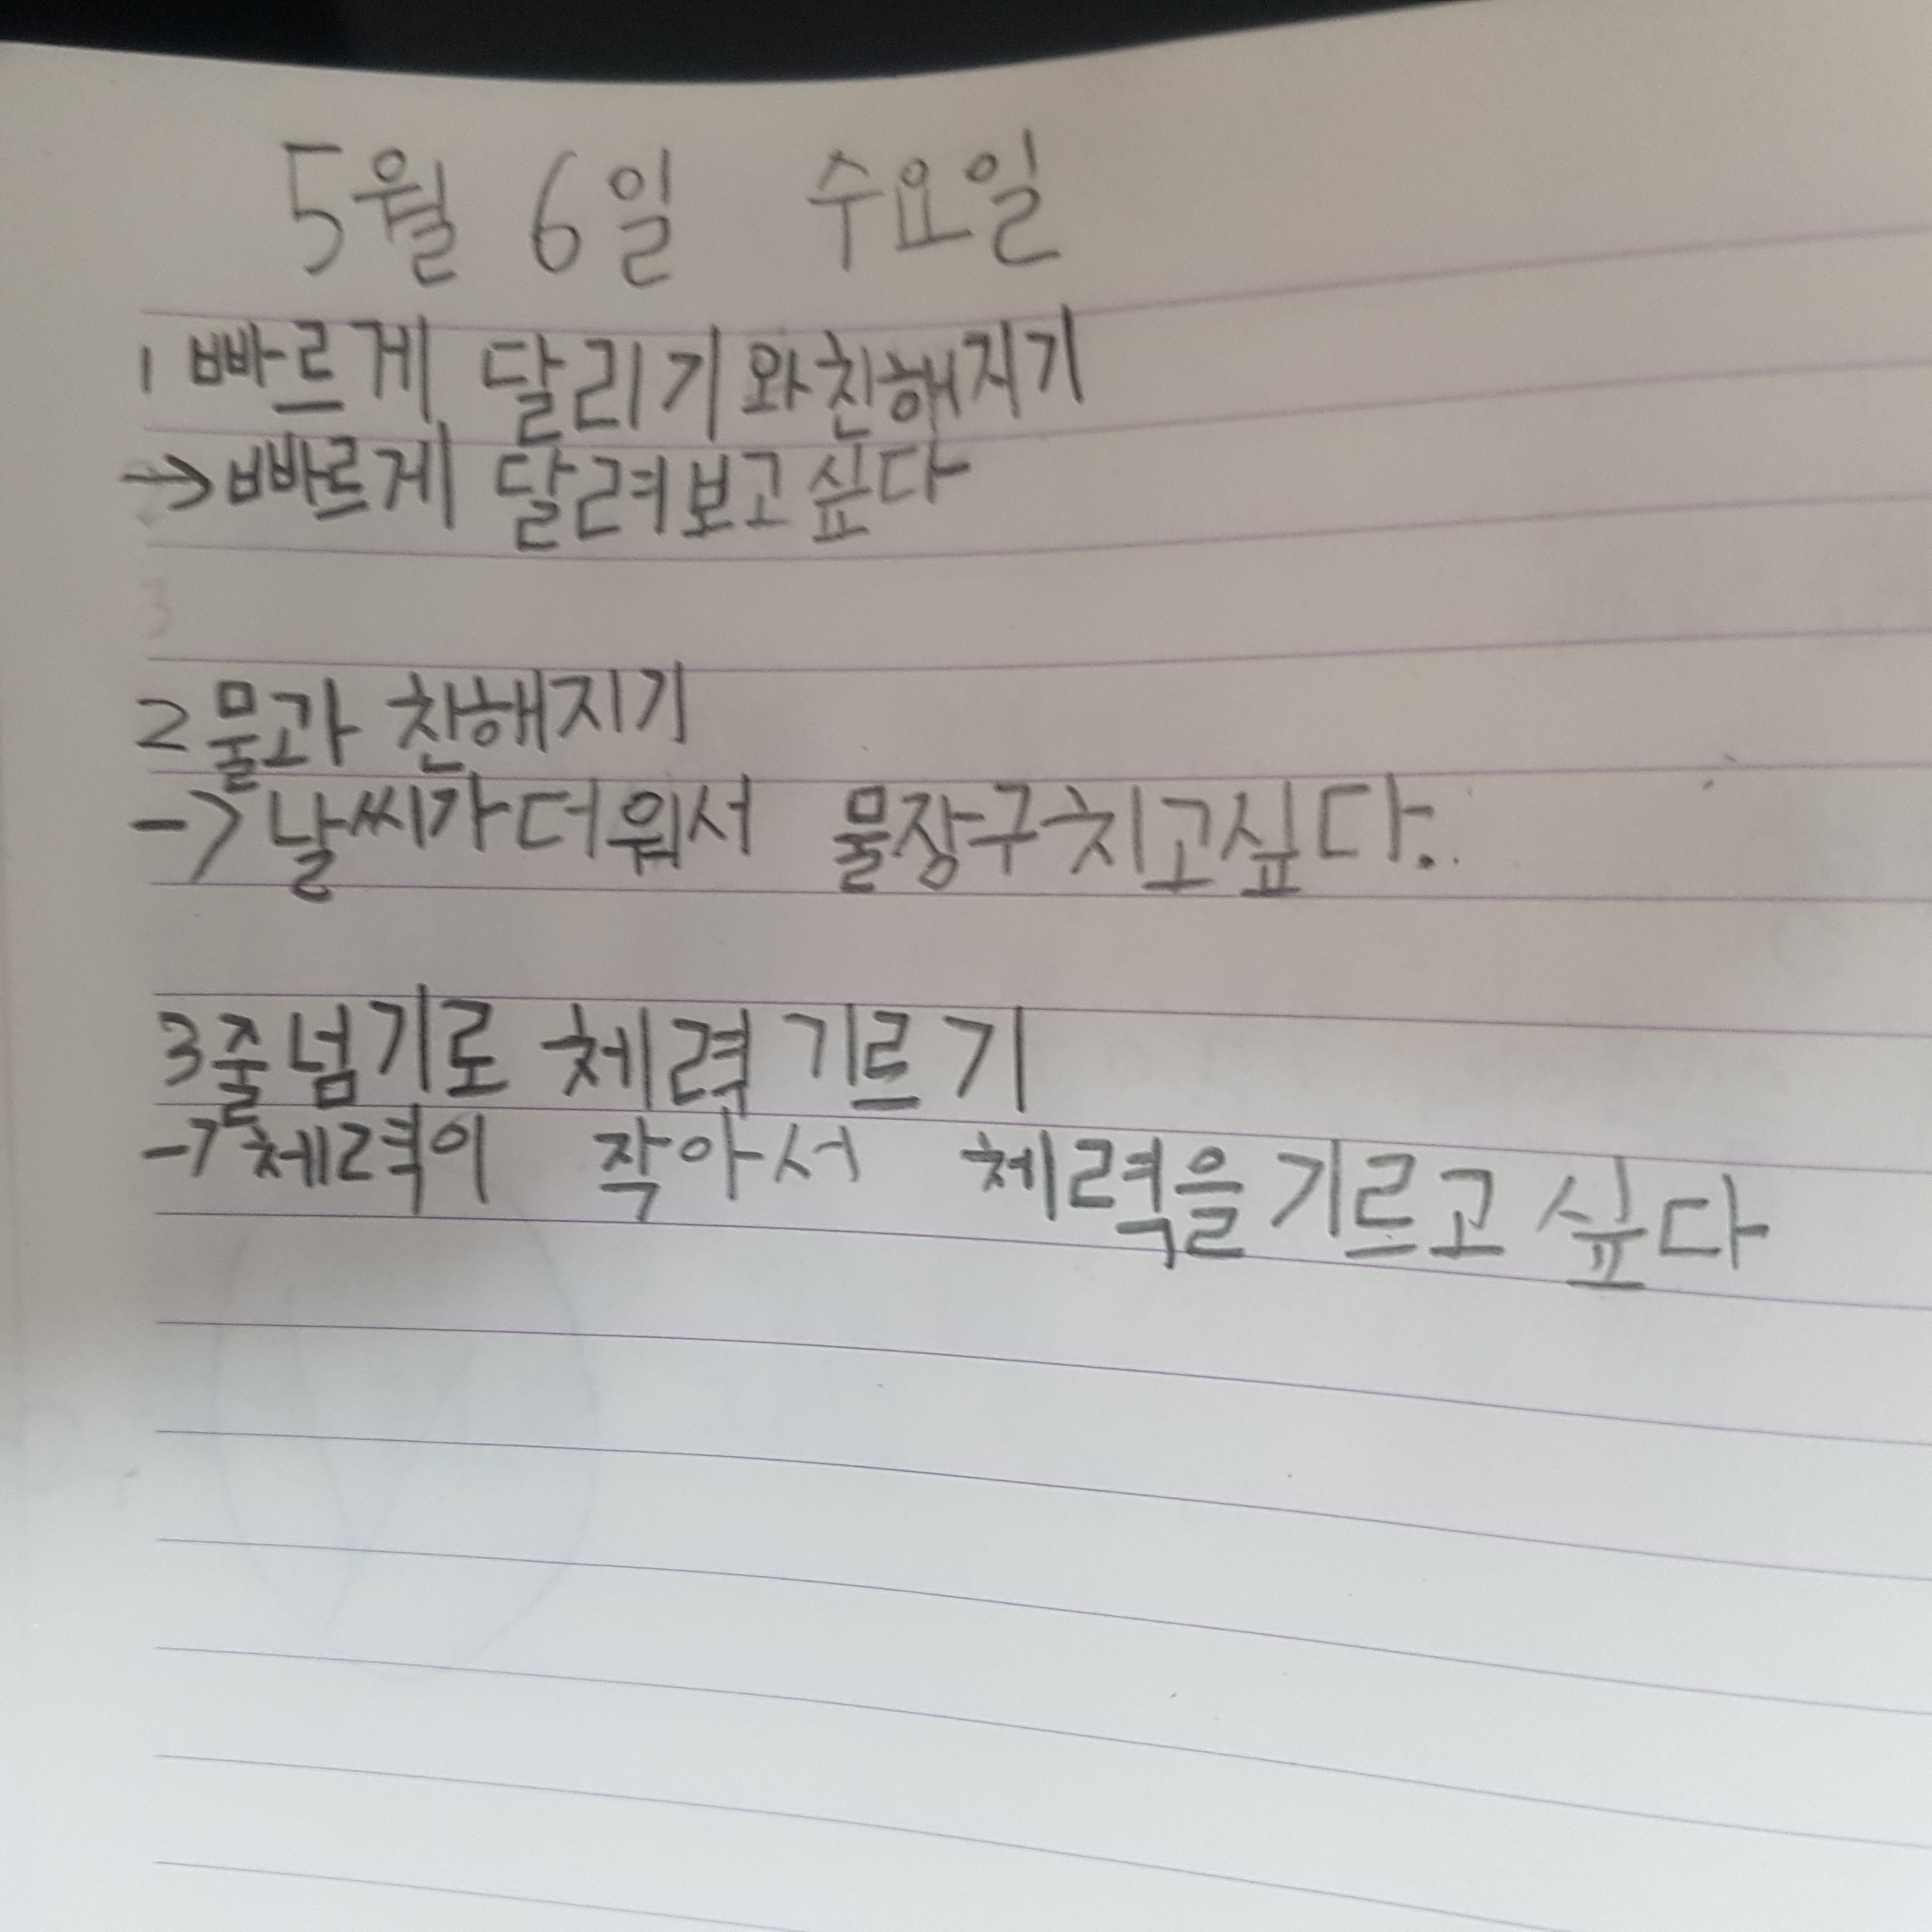 5월 6일 수요일
1 빠르게 달리기와친해지기
→빠르게 달려보고싶다
3
2 물과 친해지기
->날씨가더워서 물장구치고싶다.
3 줄넘기로 체력 기르기
->체력이 작아서 체력을 기르고 싶다